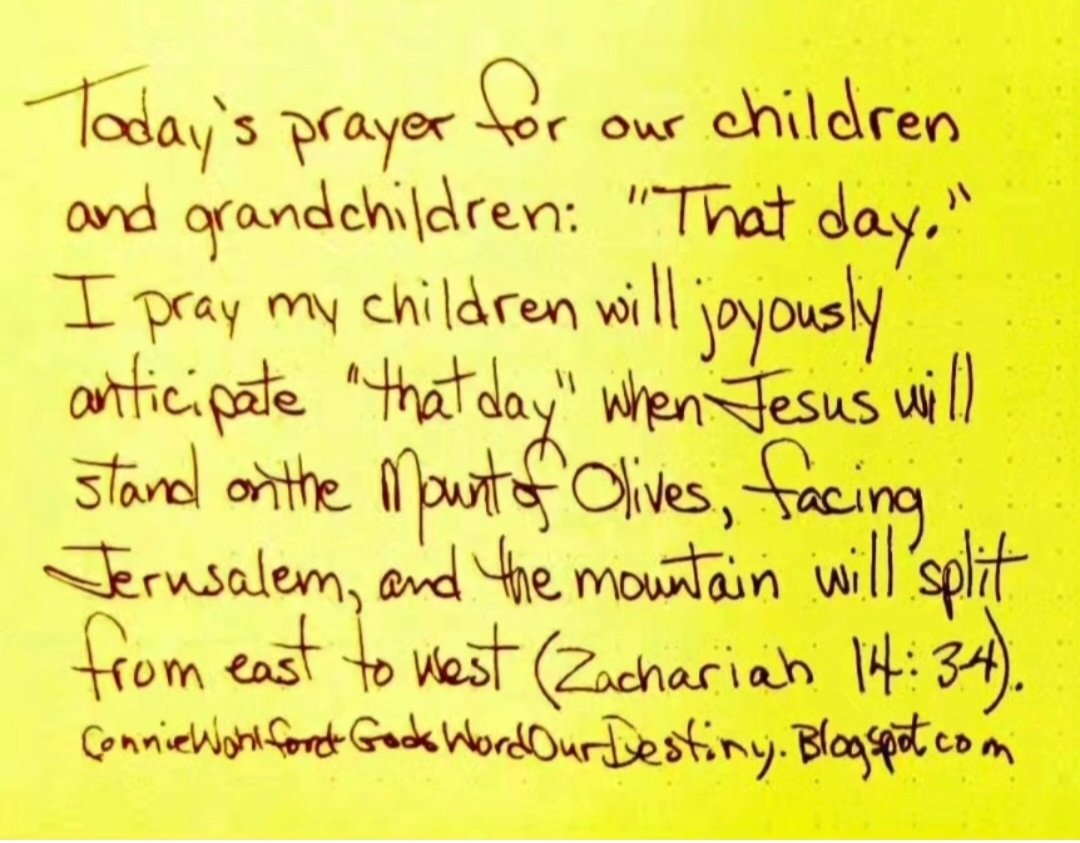 Today's prayer for our children
and grandchildren: "That day."
I pray my children will joyously
anticipate "that day" when Jesus will
stand on the Mount of Olives, facing
Jerusalem, and the mountain will split
from east to west (Zachariah 14:34).
ConnieWohlfordGodsWordOurDestiny.Blogspot com